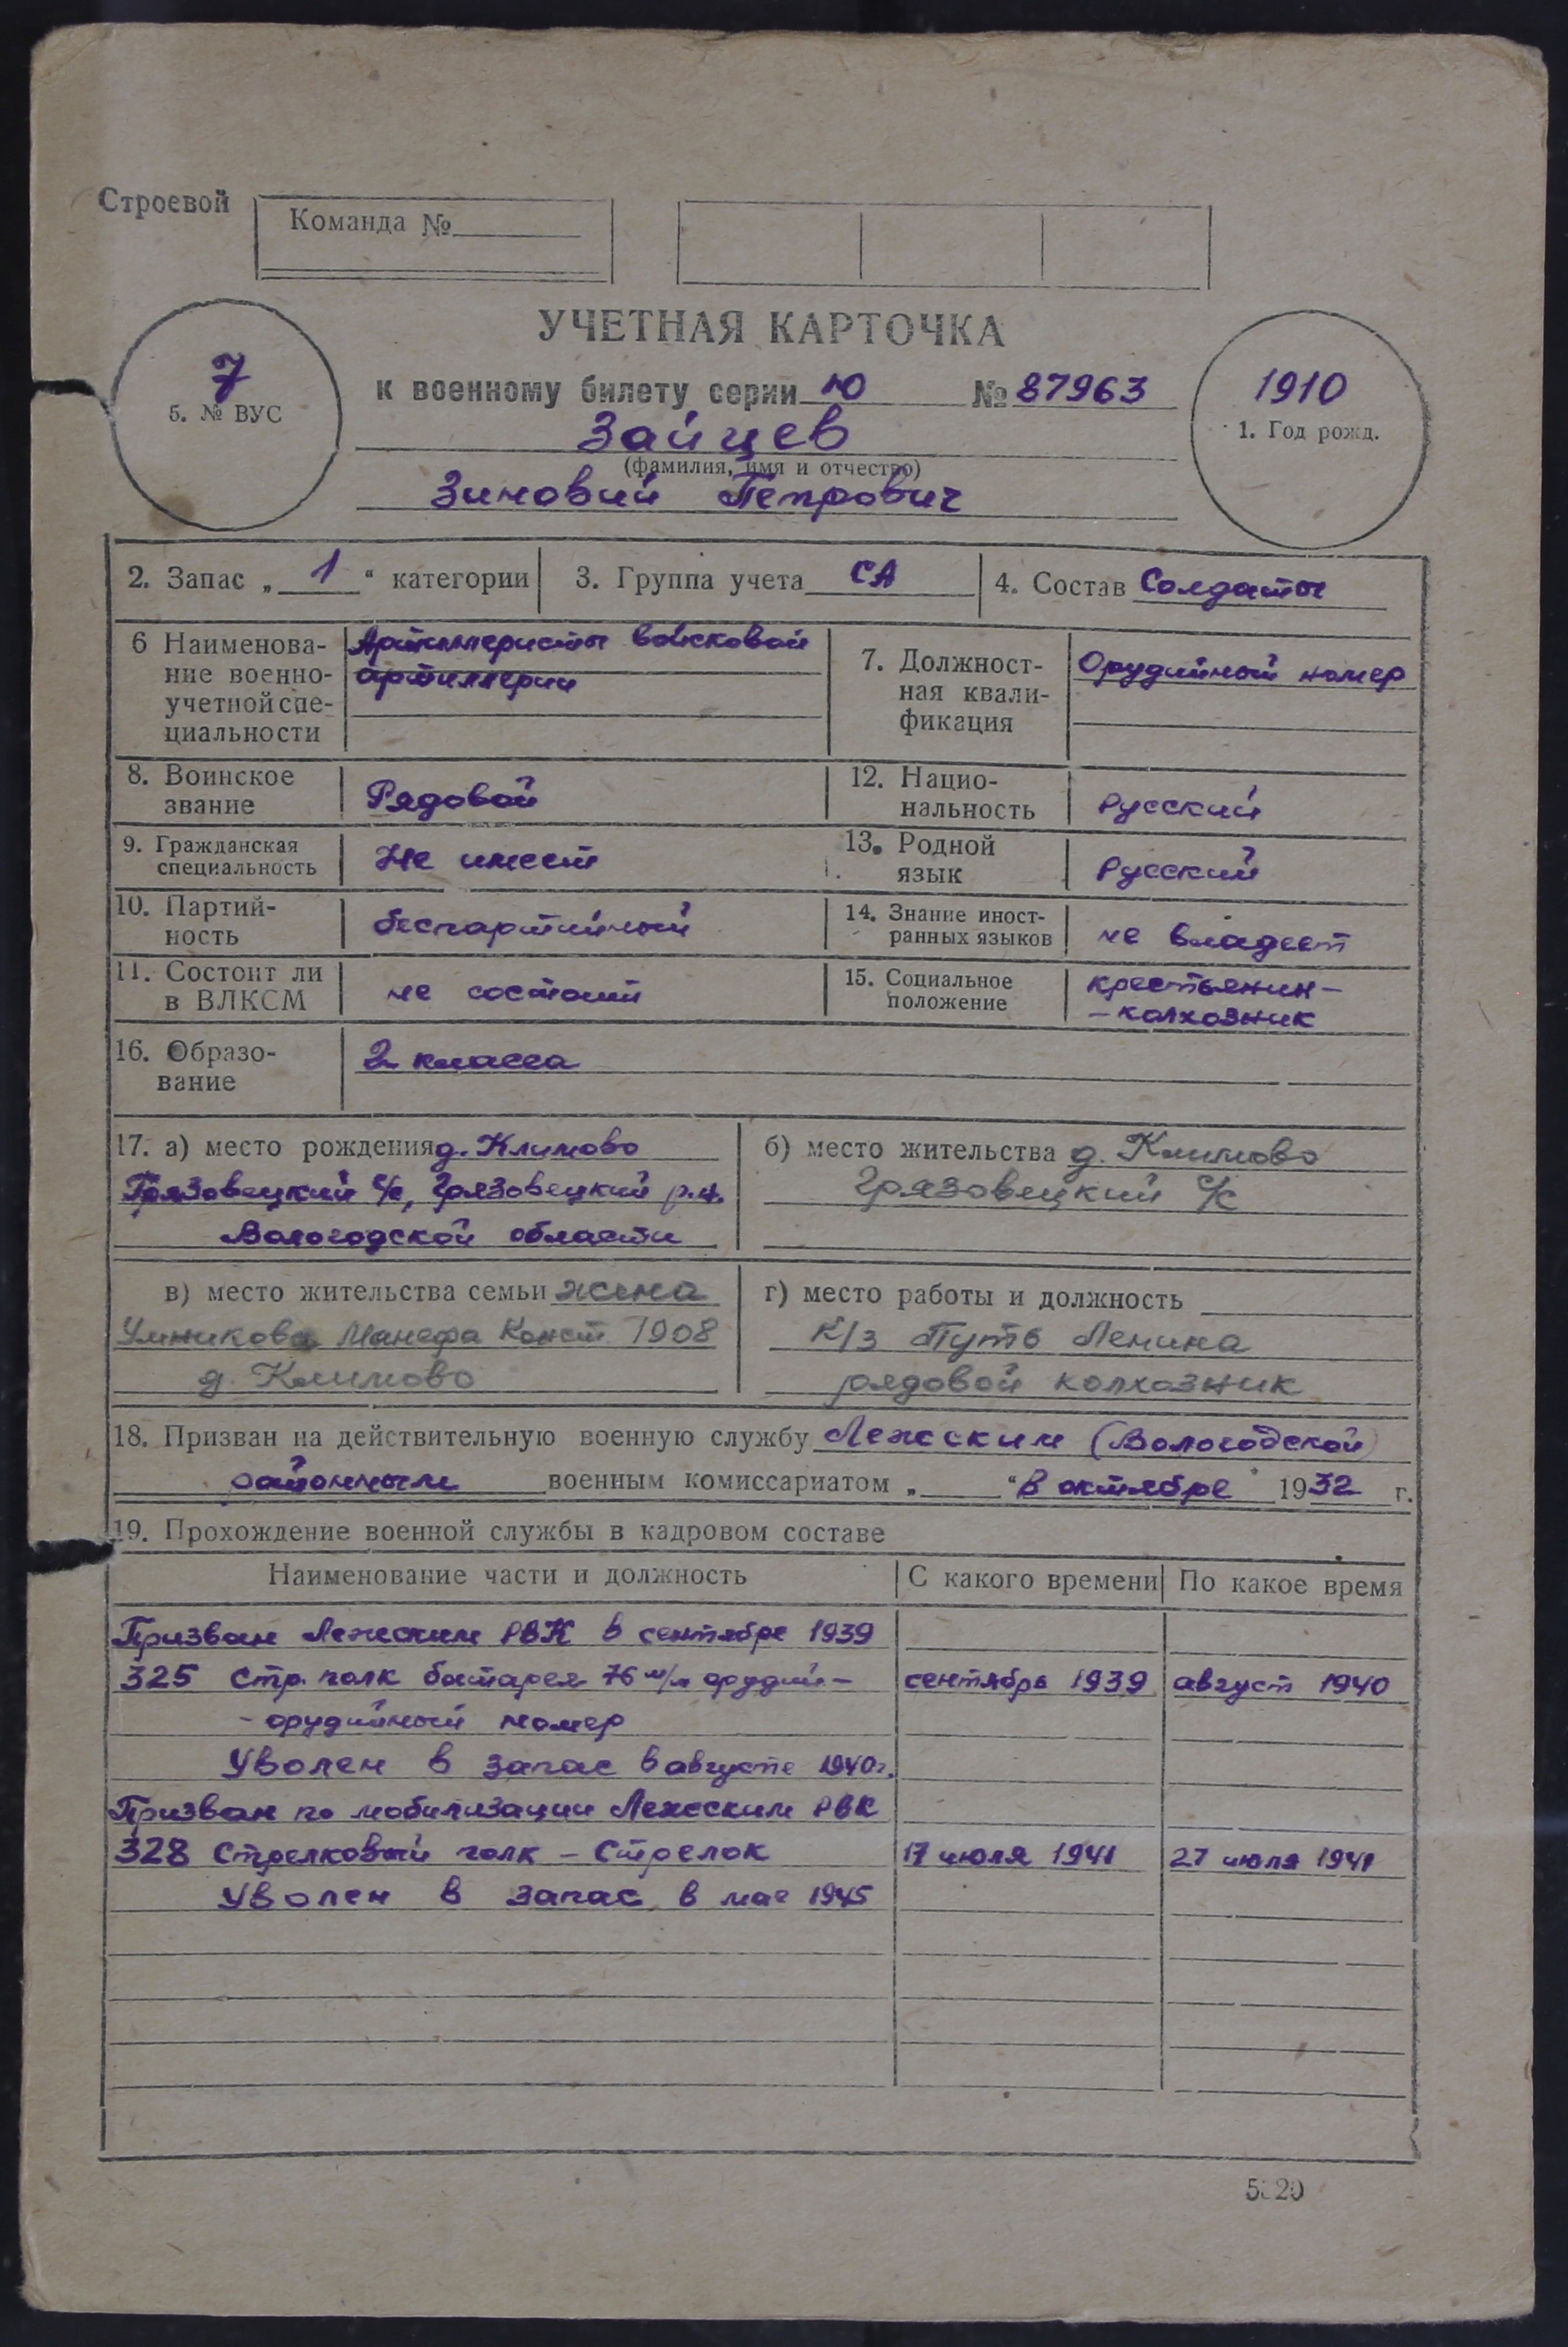 Строевой
Команда №
УЧЕТНАЯ КАРТОЧКА
7
5. № ВУС
к военному билету серии Ю № 87963
1910
1. Год рожд.
Зайцев
(фамилия, имя и отчество)
Зиновий Петрович
2. Запас „ 1 “ категории
3. Группа учета СА
4. Состав Солдаты
6 Наименова-
ние военно-
учетной спе-
циальности
Артиллеристы войсковой
артиллерии
7. Должност-
ная квали-
фикация
Орудийный номер
8. Воинское
звание
Рядовой
12. Нацио-
нальность
Русский
9. Гражданская
специальность
Не имеет
13. Родной
язык
Русский
10. Партий-
ность
беспартийный
14. Знание иност-
ранных языков
не владеет
11. Состоит ли
в ВЛКСМ
не состоит
15. Социальное
положение
крестьянин-
-колхозник
16. Образо-
вание
2 класса
17. а) место рождения д. Климово
Грязовецкий с/с, Грязовецкий р.н.
Вологодской области
б) место жительства д. Климово
Грязовецкий с/с
в) место жительства семьи жена
Умникова Манефа Конст. 1908
д. Климово
г) место работы и должность
К/з Путь Ленина
рядовой колхозник
18. Призван на действительную военную службу Лежским (Вологодской)
районным военным комиссариатом „ “ В октябре 1932 г.
19. Прохождение военной службы в кадровом составе
Наименование части и должность
С какого времени
По какое время
Призван Лежским РВК в сентябре 1939
325 Стр. полк батарея 76 м/м орудий- сентябрь 1939 август 1940
- орудийный номер
Уволен в запас в августе 1940 г.
Призван по мобилизации Лежским РВК
328 Стрелковый полк - Стрелок 17 июля 1941 27 июля 1941
Уволен в запас в мае 1945